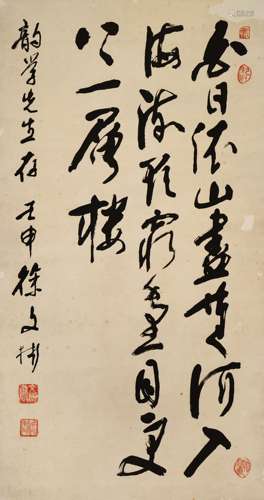 白日依山盡黃河入
海流欲窮千里目更
上一層樓
韵学先生存 壬申 徐文彬